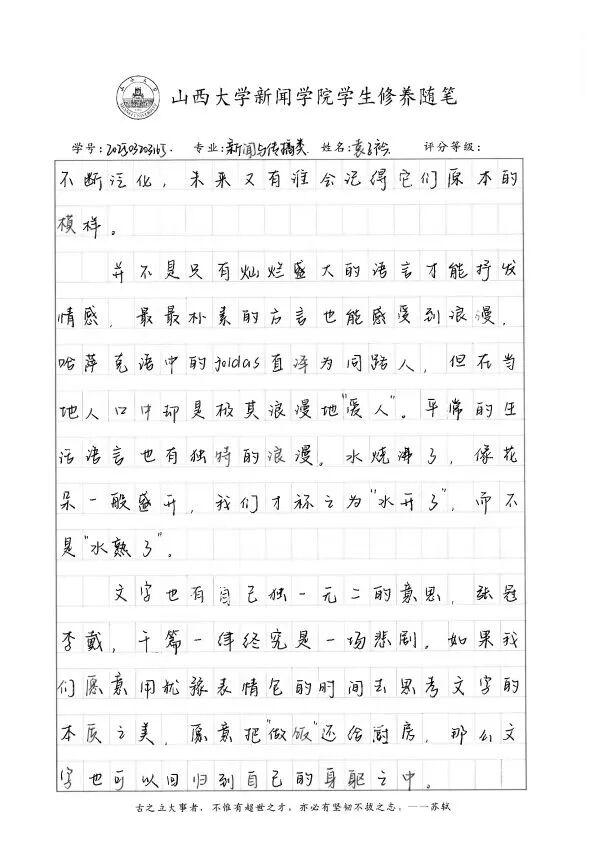 山西大学新闻学院学生修养随笔
学号: 专业:新闻与传播类 姓名: 评分等级:
不断泛化，未来又有谁会记得它们原本的
模样。
并不是只有灿烂盛大的语言才能抒发
情感，最最朴素的方言也能感受到浪漫，
哈萨克语中的joldas直译为同路人，但在当
地人口中却是极其浪漫地“爱人”。平常的生
活语言也有独特的浪漫。水烧沸了，像花
朵一般盛开，我们才称之为“水开了”，而不
是“水熟了”。
文字也有自己独一无二的意思，张冠
李戴，千篇一律终究是一场悲剧。如果我
们愿意用犹豫表情包的时间去思考文字的
本质之美，愿意把“做饭”还给厨房，那么文
字也可以回归到自己的身躯之中。
古之立大事者，不惟有超世之才，亦必有坚韧不拔之志。——苏轼